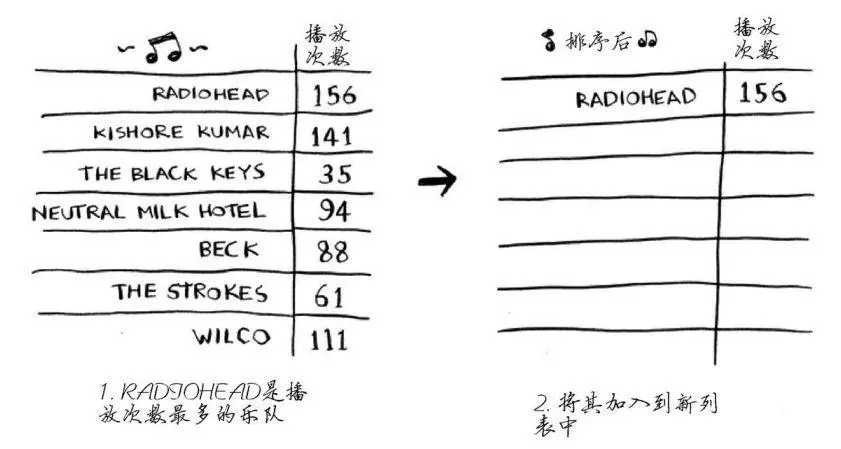 播放
次数
RADIOHEAD 156
KISHORE KUMAR 141
THE BLACK KEYS 35
NEUTRAL MILK HOTEL 94
BECK 88
THE STROKES 61
WILCO 111
1. RADIOHEAD是播
放次数最多的乐队
排序后
播放
次数
RADIOHEAD 156
2. 将其加入到新列
表中